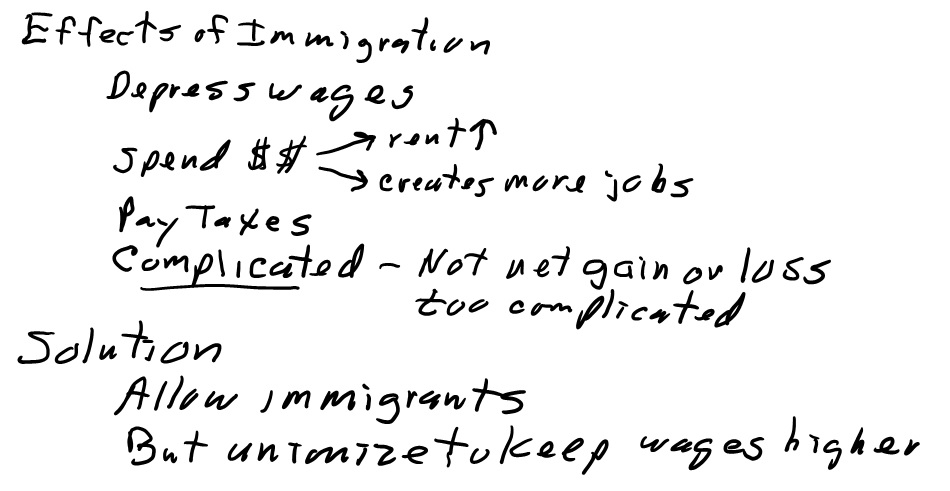 Effects of Immigration
Depress wages
spend $$ → rent↑
→ creates more jobs
Pay Taxes
Complicated - Not net gain or loss
too complicated
Solution
Allow immigrants
But unionize to keep wages higher